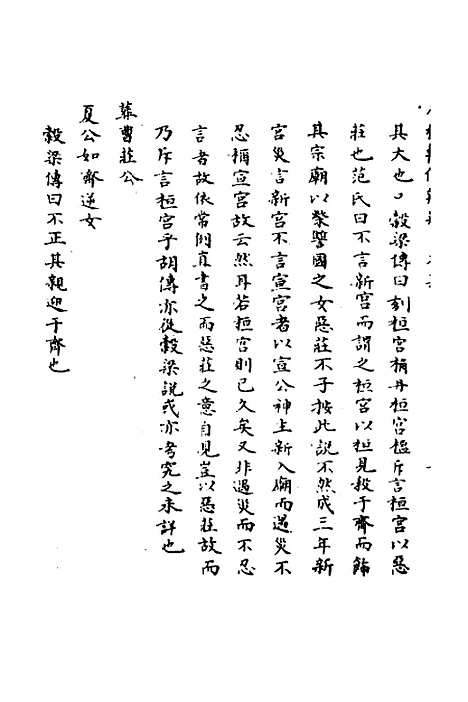 其大也〇穀梁傳曰刻桓宮桷丹桓宮楹斥言桓宮以惡
莊也范氏曰不言新宮而謂之桓宮以桓見殺于齊而飾
其宗廟以榮讐國之女惡莊不子按此說不然成三年新
宮災言新宮不言宣宮者以宣公神主新入廟而遇災不
忍稱宣宮故云然耳若桓宮則已久矣又非遇災而不忍
言者故依常例直書之而惡莊之意自見豈以惡莊故而
乃斥言桓宮乎胡傳亦從穀梁說或亦考究之未詳也
葬曹莊公
夏公如齊逆女
穀梁傳曰不正其親迎于齊也